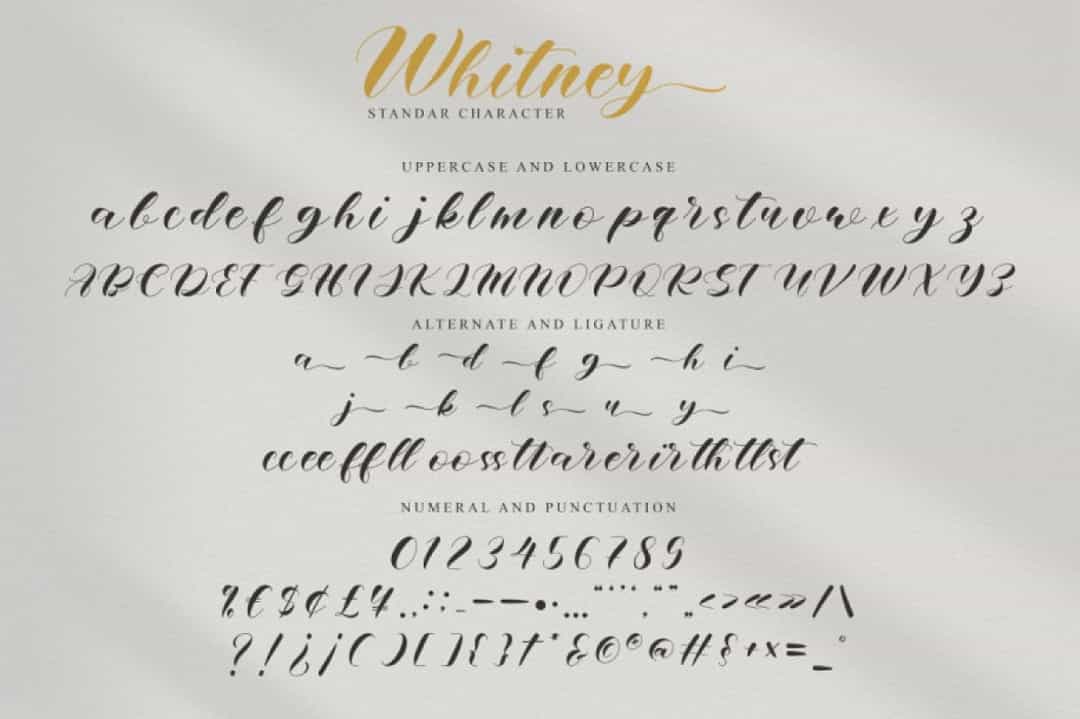 Whitney
STANDAR CHARACTER
UPPERCASE AND LOWERCASE
abcdefghijklmnopqrstuvwxyz
ABCDEFGHIJKLMNOPQRSTUVWXYZ
ALTERNATE AND LIGATURE
a b d f g h i
j k l s u y
cceeffll oossttarerirthtlst
NUMERAL AND PUNCTUATION
0123456789
%€$¢£¥.,:;-–—•·…"''‚""„<>«»/\
?!¿¡()[]{}†*&©®@#§+x=_°